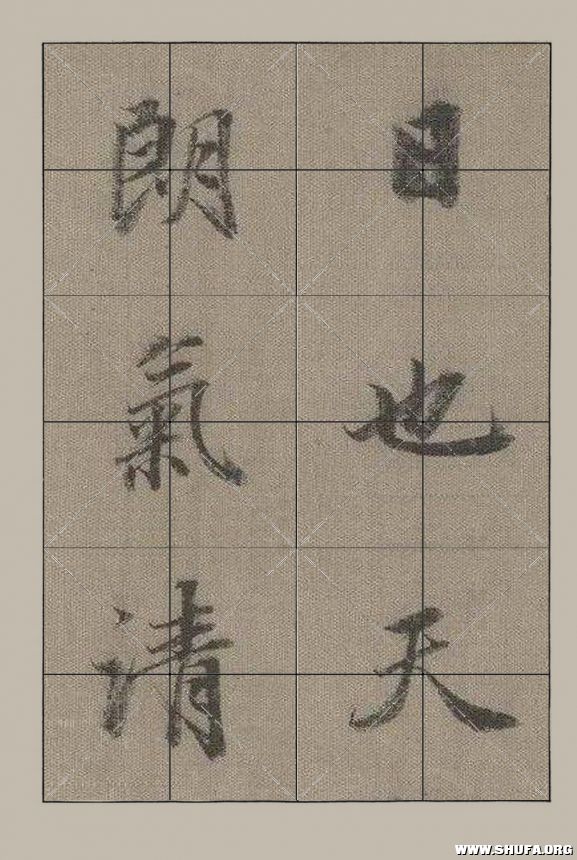 日也天
朗氣清
WWW.SHUFA.ORG